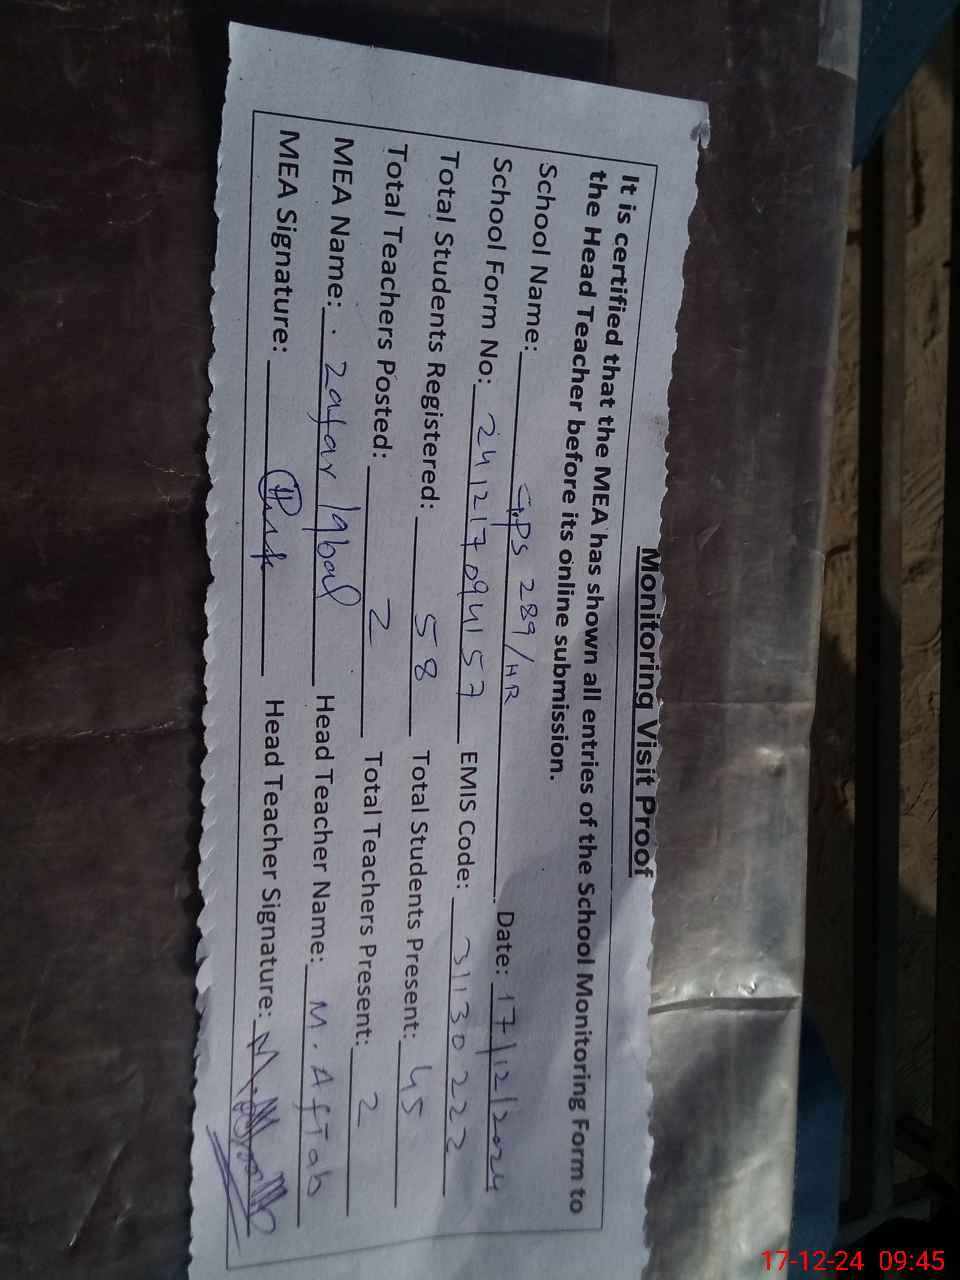 Monitoring Visit Proof
It is certified that the MEA has shown all entries of the School Monitoring Form to
the Head Teacher before its online submission.
School Name: GPS 289/HR Date: 17/12/2024
School Form No: 241217094157 EMIS Code: 31130222
Total Students Registered: 58 Total Students Present: 45
Total Teachers Posted: 2 Total Teachers Present: 2
MEA Name: Zafar Iqbal Head Teacher Name: M. Aftab
MEA Signature: Head Teacher Signature:
17-12-24 09:45